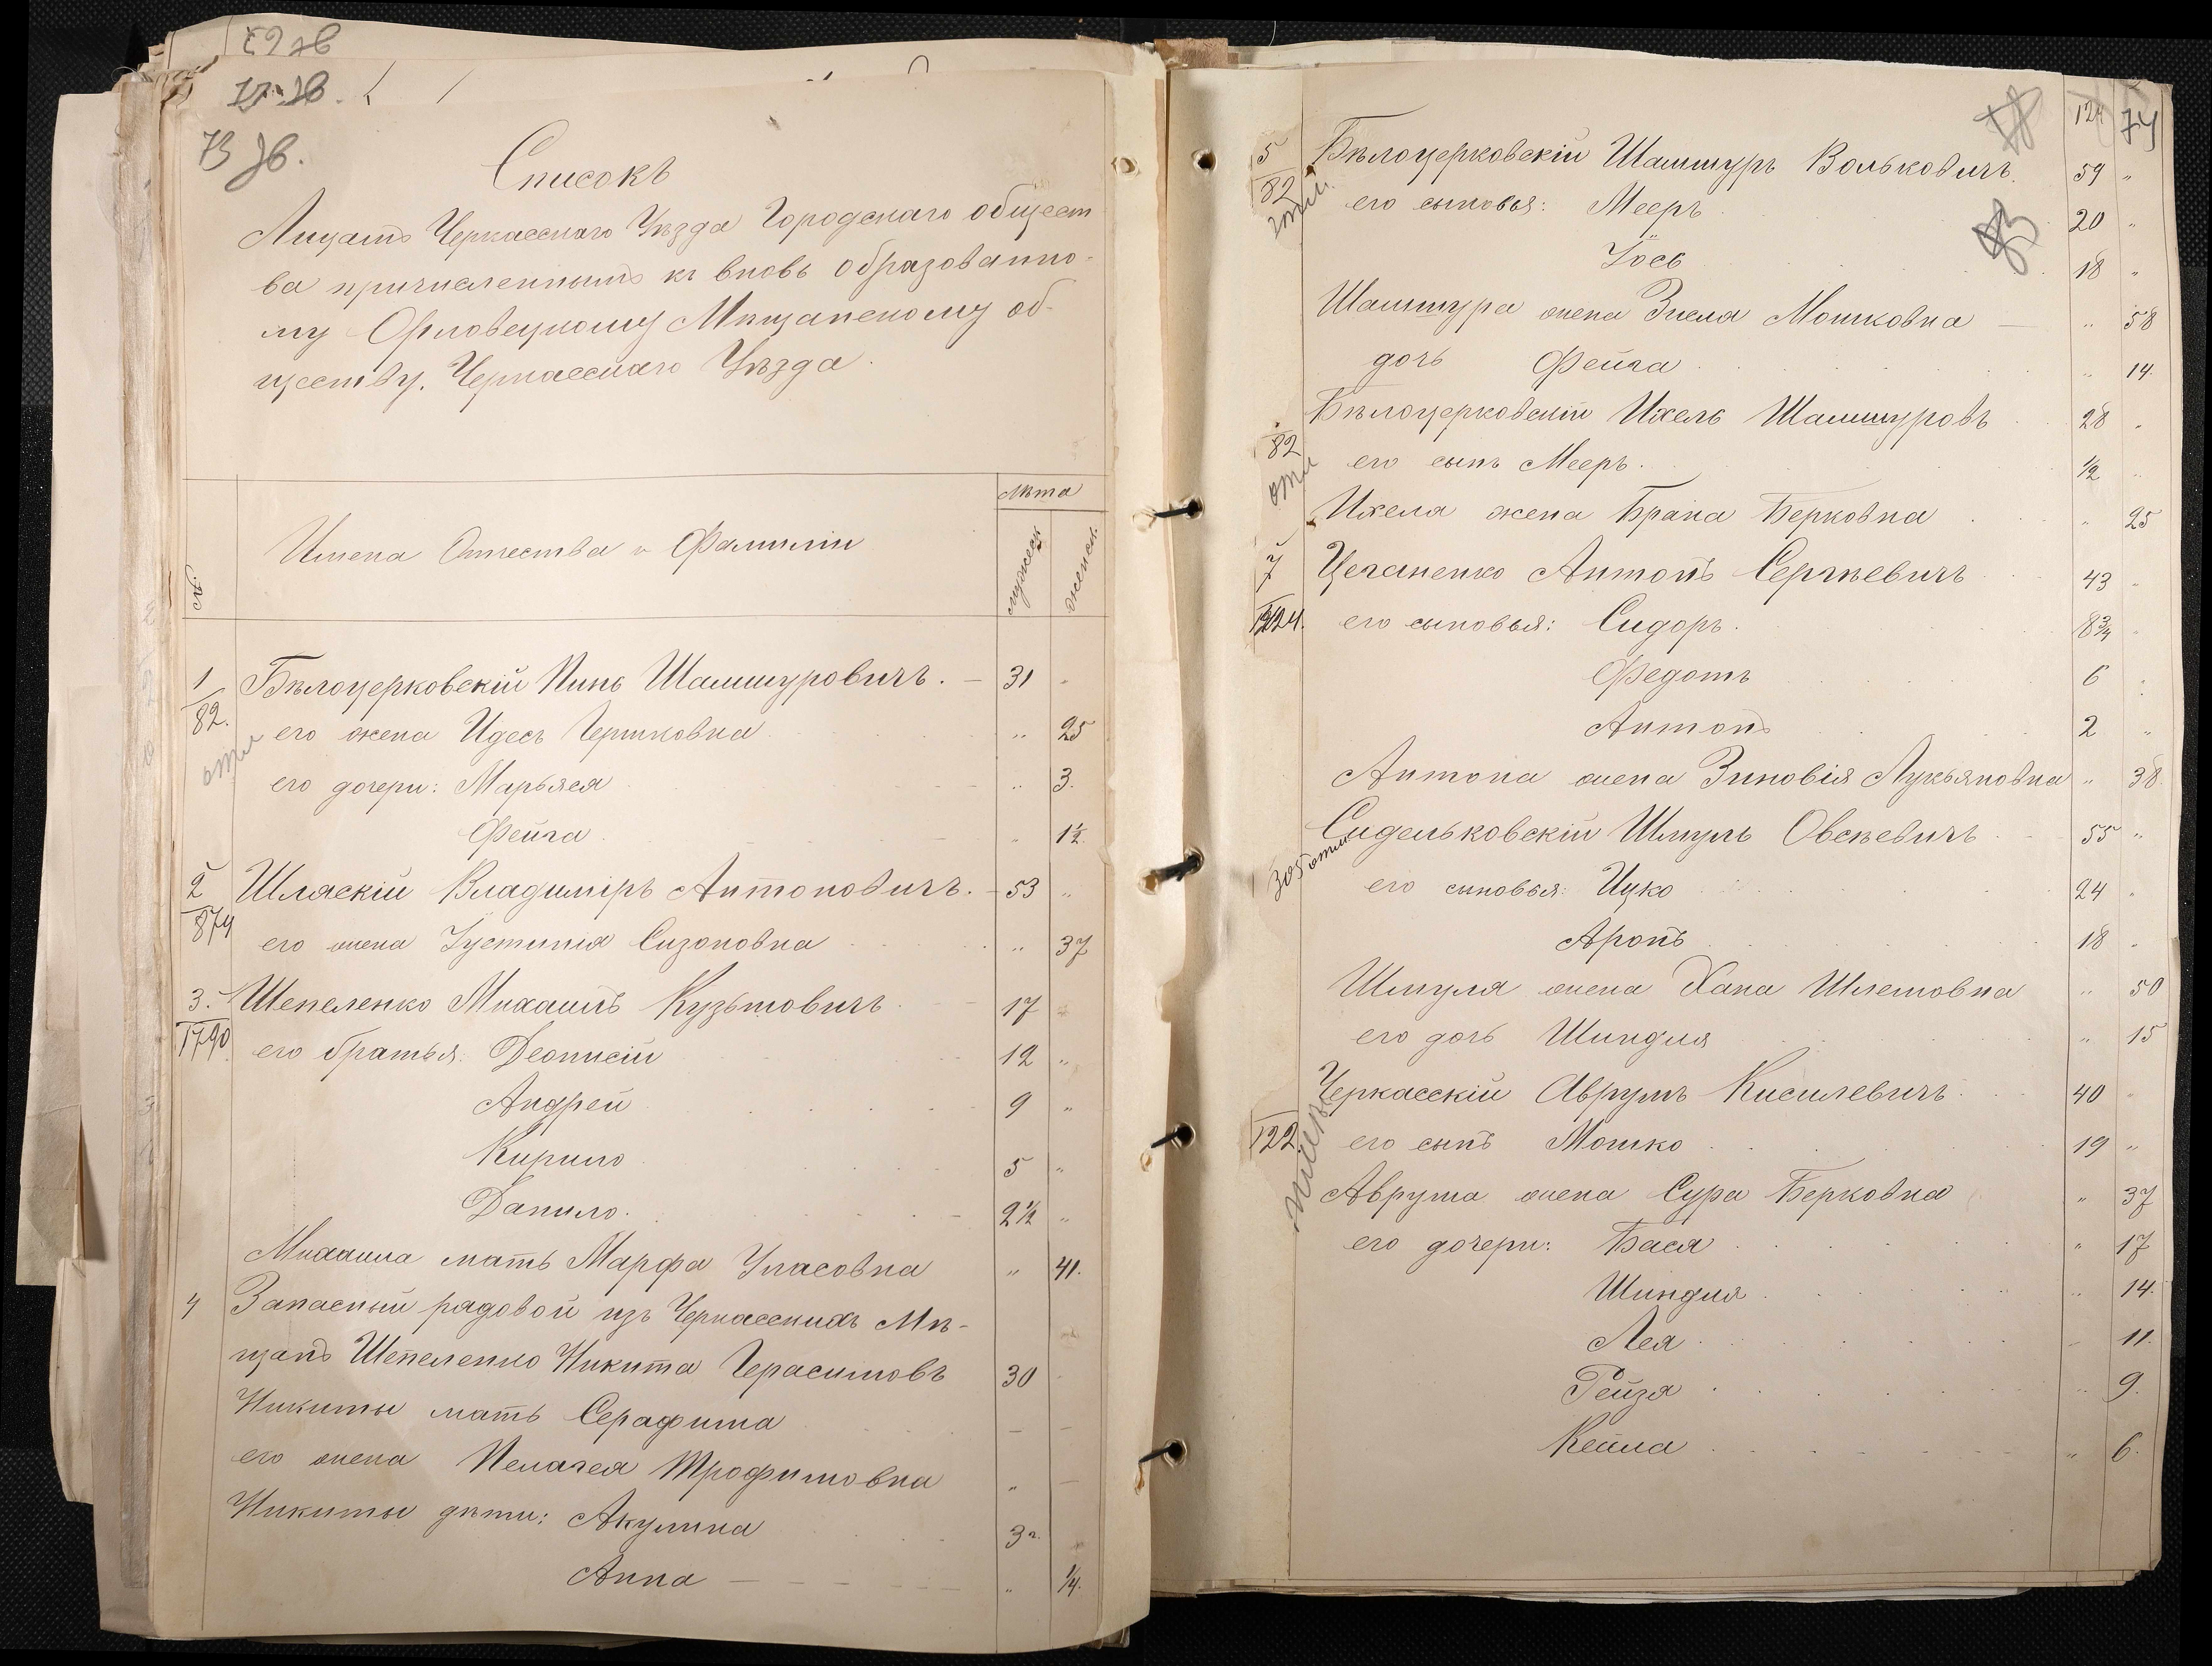 73 зв.
Списокъ
Лицамъ Черкасскаго Уѣзда Городскаго общест
ва причисленнымъ къ вновь образованно-
му Орловецкому Мѣщанскому об-
ществу, Черкасскаго Уѣзда.
Имена Отчества и Фамиліи
лѣта
мужеск.
женск.
1 Бѣлоцерковскій Пинь Шамшуровичъ. — 31 "
82. его жена Идесъ Гершковна " 25
его дочери: Марьяся " 3.
Фейга " 1½
2 Шляскій Владиміръ Антоновичъ. — 53 "
874 его жена Іустинія Сизоновна " 37
3. Шепеленко Михаилъ Кузьмовичъ 17
1790 его братья: Деонисій 12 "
Андрей 9 "
Кирило 5 "
Данило. 2½ "
Михаила мать Марфа Уласовна " 41.
4 Запасный рядовой изъ Черкасскихъ Мѣ-
щанъ Шепеленко Никита Герасимовъ 30
Никиты мать Серафима — —
его жена Пелагея Трофимовна " —
Никиты дѣти: Акулина 3 г.
Анна — " ¼.
124 74
5 Бѣлоцерковскій Шамшуръ Вольковичъ. 59 "
82 его сыновья: Мееръ 20 "
Іось 18 "
Шамшура жена Злела Мошковна — " 58
дочь Фейга " 14.
Бѣлоцерковскій Ихель Шамшуровъ 28 "
82 его сынъ Мееръ. ½ "
Ихеля жена Брана Берковна " 25
7 Цеганенко Антонъ Сергѣевичъ 43 "
его сыновья: Сидоръ. 8¾ "
Федотъ 6 "
Антонъ 2 "
Антона жена Зиновія Лукьяновна " 38.
Сидельковскій Шмуль Овсѣевичъ 55 "
его сыновья: Ицко 24 "
Аронъ 18 "
Шмуля жена Хана Шлемовна " 50
его дочь Шиндля " 15
Черкасскій Аврумъ Кисилевичъ 40 "
122 его сынъ Мошко 19 "
Аврума жена Сура Берковна " 37
его дочери: Бася " 17
Шиндля " 14.
Лея — 11.
Рейзя " 9.
Кейла " 6.